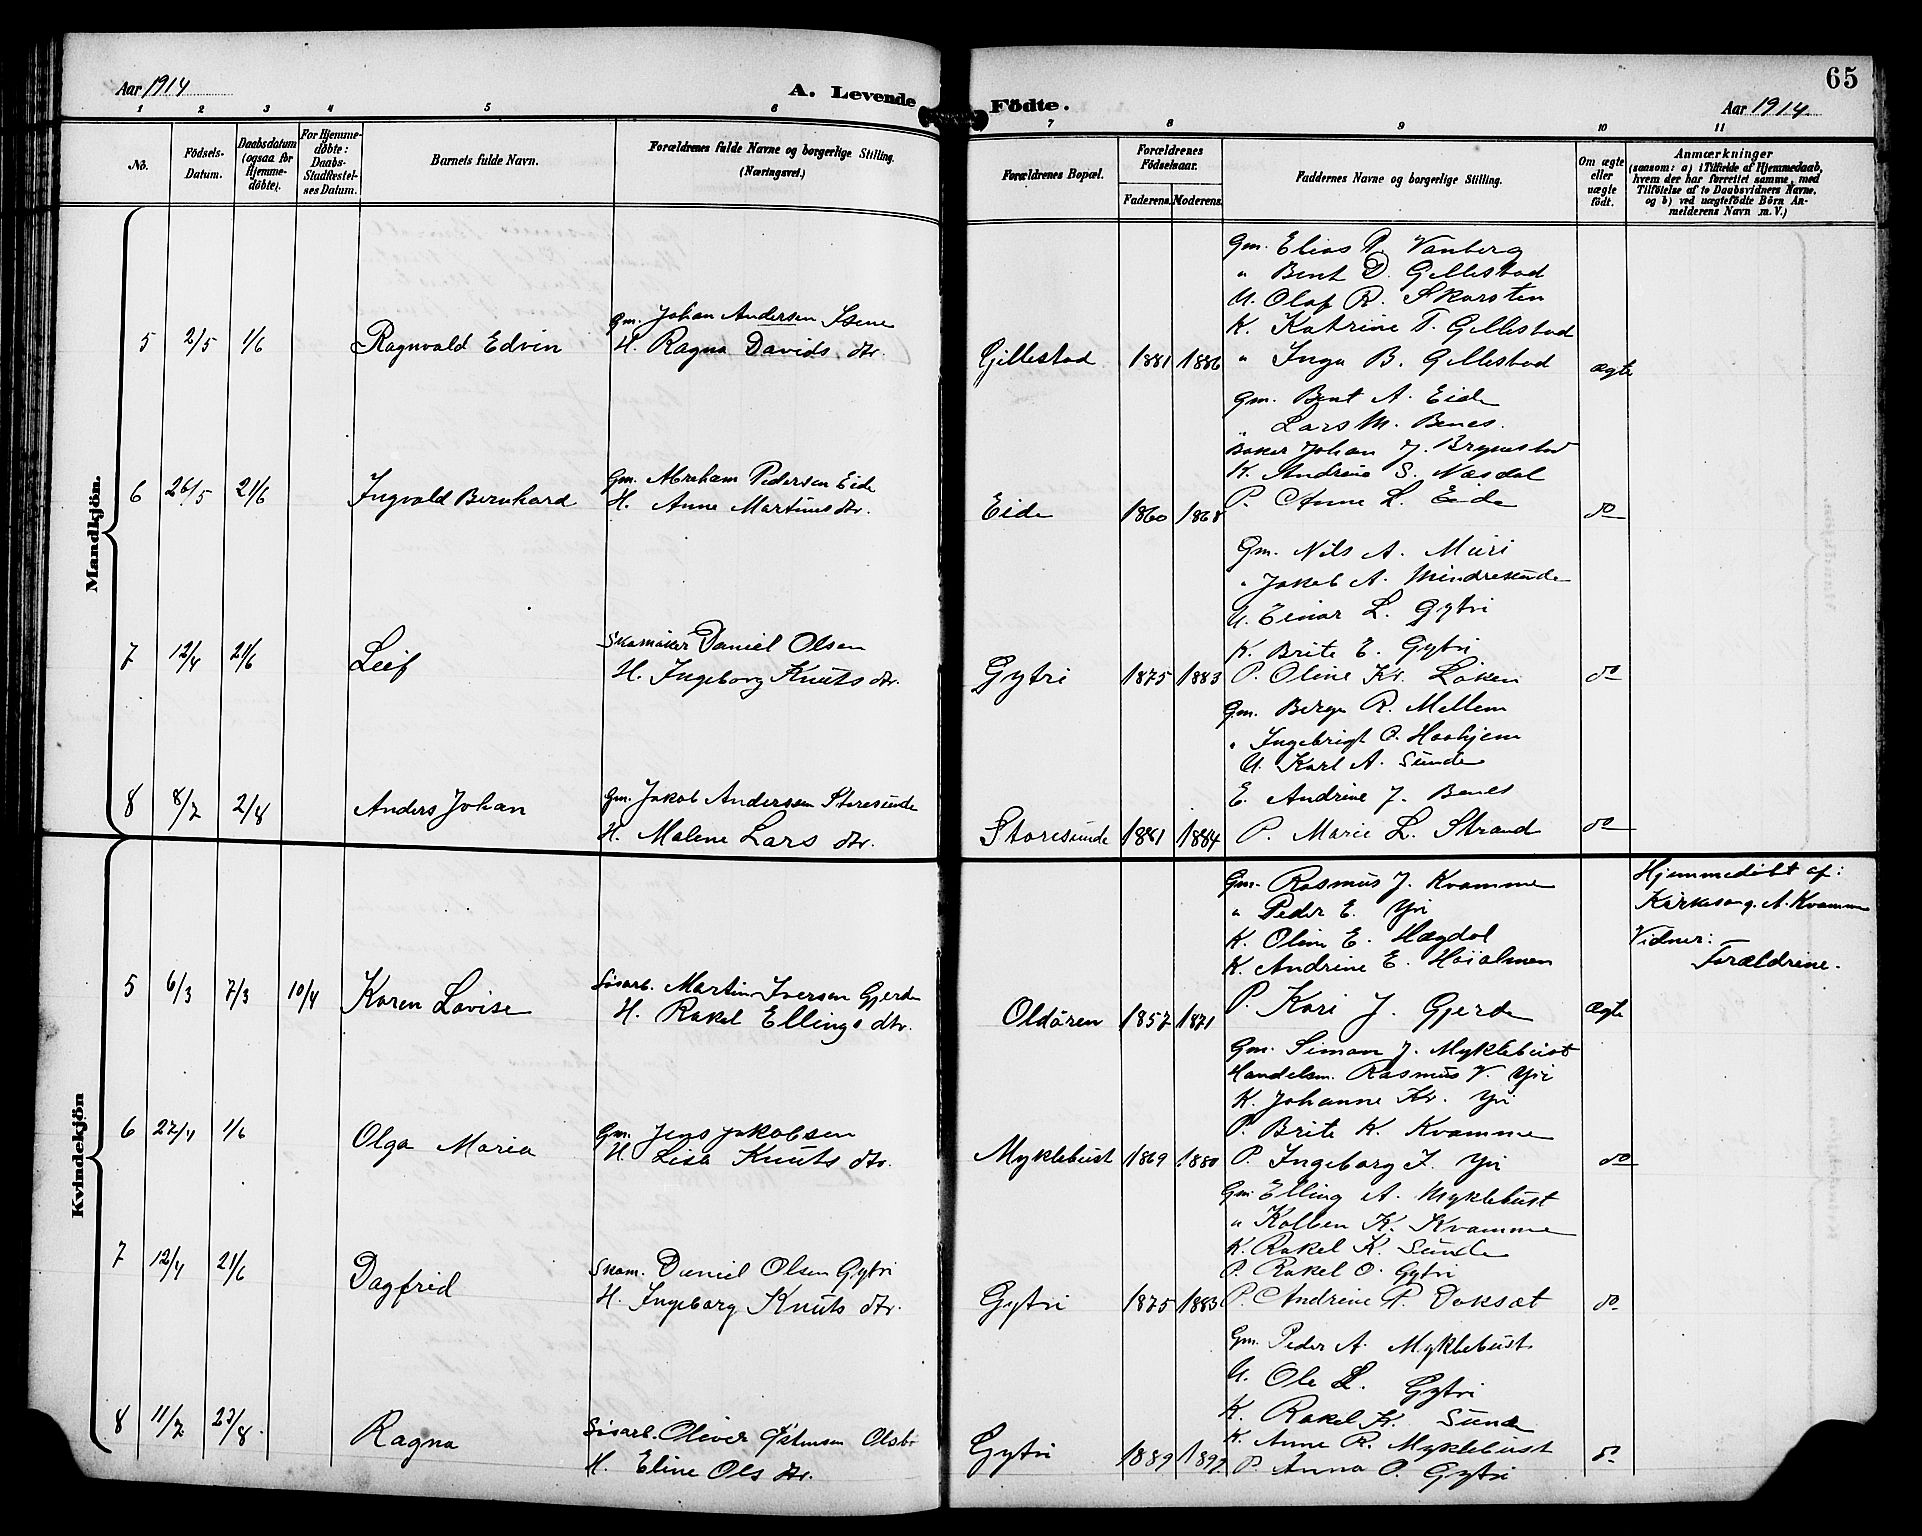 65
Aar 1914
A. Levende Födte.
Aar 1914.
1 2 3 4 5 6 7 8 9 10 11
No.
Födsels-
Datum.
Daabsdatum
(ogsaa for
Hjemme-
döbte).
For Hjemme-
döbte:
Daabs-
Stadfæstel-
ses Datum.
Barnets fulde Navn.
Forældrenes fulde Navne og borgerlige Stilling.
(Næringsvei.)
Forældrenes Bopæl.
Forældrenes
Födselsaar.
Faderens. Moderens.
Faddernes Navne og borgerlige Stilling.
Om ægte
eller
uægte
födt.
Anmærkninger
(saasom: a) i Tilfælde af Hjemmedaab,
hvem der har forrettet samme, med
Tilföielse af to Daabsvidners Navne,
og b) ved uægtefödte Börn An-
melderens Navn m. V.)
Mandkjön.
Gm. Elias P. Vanberg
" Bent D. Gillestad
U. Olaf R. Skarsten
K. Katrine T. Gillestad
Gm. Johan Andersen Isene
5 2/5 1/6 Ragnvald Edvin H. Ragna Davids dtr. Gillestad 1881 1886 " Inga B. Gillestad ægte
Gm. Bent A. Eide
" Lars M. Benes.
Baker Johan J. Brynestad
K. Andrine S. Næsdal
Gm. Abraham Pedersen Eide
6 26/5 21/6 Ingvald Bernhard H. Anne Martinus dtr. Eide 1860 1868 P. Anne L. Eide do
Gm. Nils A. Muri
" Jakob A. Mindresunde
U. Einar L. Gytri
K. Brite E. Gytri
Skomaker Daniel Olsen
7 12/4 21/6 Leif H. Ingeborg Knuts dtr. Gytri 1875 1883 P. Oline Kr. Löken do
Gm. Berge R. Mellem
" Ingebrigt O. Haahjem
U. Karl A. Sunde
E. Andrine J. Benes
Gm. Jakob Anderssen Storesunde
8 8/7 2/8 Anders Johan H. Malene Lars dtr. Storesunde 1881 1884 P. Marie L. Strand do
Kvindekjön
Gm. Rasmus J. Kvamme
" Peder E. Yri
K. Oline E. Hægdal
K. Andrine E. Höialmen
Hjemmedöbt af:
Kirkesang. A. Kvamme
Vidner:
Forældrene.
Sisarb. Martin Iversen Gjerde
5 6/3 7/3 10/4 Karen Lovise H. Rakel Ellings dtr. Oldören 1857 1871 P. Kari J. Gjerde ægte
Gm. Simon J. Myklebust
Handelsm. Rasmus V. Yri
K. Johanne Kr. Yri
P. Brite K. Kvamme
Gm. Jens Jakobsen
6 27/4 1/6 Olga Maria H. Lisa Knuts dtr. Myklebust 1869 1880 P. Ingeborg I. Yri do
Gm. Elling A. Myklebust
" Kolben K. Kvamme
K. Rakel K. Sunde
P. Rakel O. Gytri
Skom. Daniel Olsen Gytri
7 12/4 21/6 Dagfrid H. Ingeborg Knuts dtr. Gytri 1875 1883 P. Andrine P. Doksæt do
Gm. Peder A. Myklebust
U. Ole L. Gytri
K. Rakel K. Sunde
K. Anne R. Myklebust
8 11/7 23/8 Ragna Sisarb. Oliver
H. Eline Ols dtr. Gytri 1889 1892 P. Anna O. Gytri do